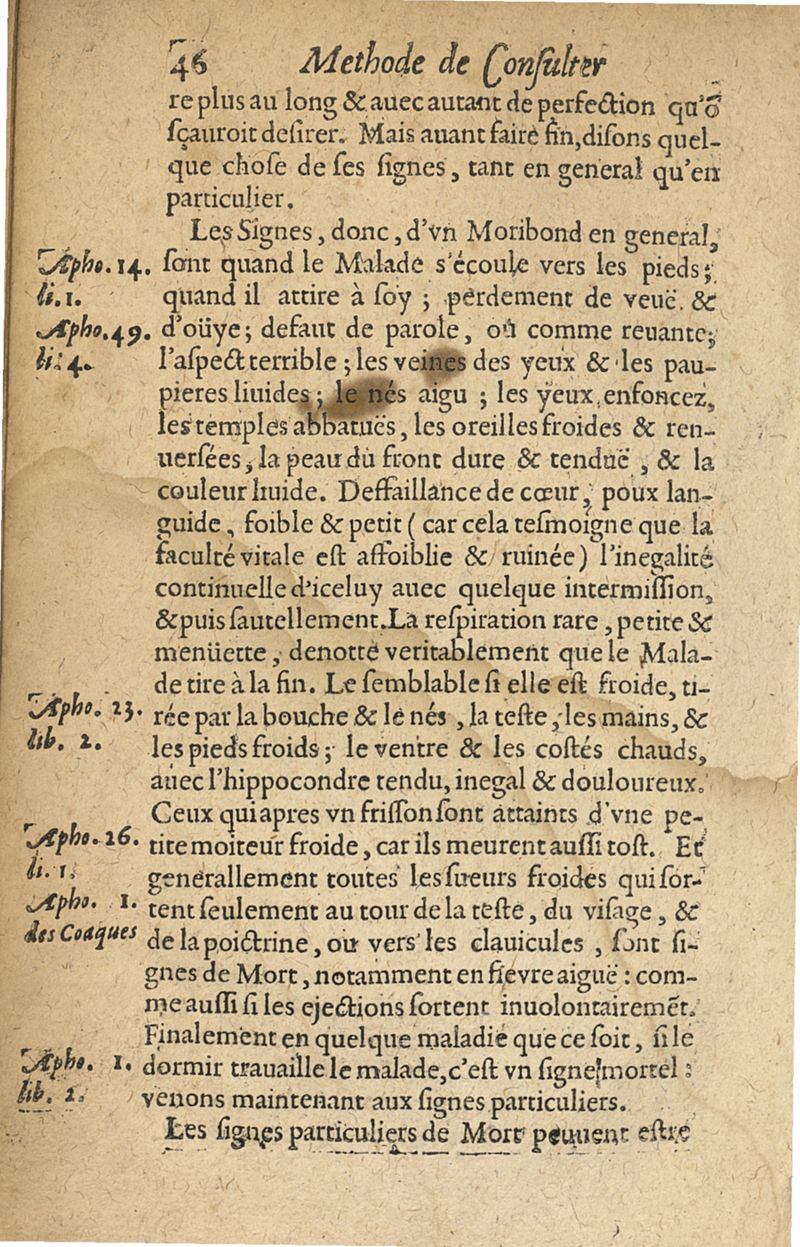 46 Methode de Conſulter
re plus au long & auec autant de perfection qu'õ
ſçauroit deſirer. Mais auant faire fin, diſons quel-
que choſe de ſes ſignes, tant en general qu'en
particulier.
Les Signes, donc, d'vn Moribond en general,
Apho. 14. ſont quand le Malade s'écoule vers les pieds;
li. 1. quand il attire à ſoy; perdement de veuë. &
Apho. 49. d'oüye; defaut de parole, où comme reuante;
li. 4. l'aſpect terrible; les veines des yeux & les pau-
pieres liuides; le nés aigu; les yeux enfoncez,
les temples abbatuës, les oreilles froides & ren-
uerſées, la peau du front dure & tenduë, & la
couleur liuide. Deffaillance de cœur, poux lan-
guide, foible & petit (car cela teſmoigne que la
faculté vitale eſt affoiblie & ruinée) l'inegalité
continuelle d'iceluy auec quelque intermiſſion,
& puis ſautellement. La reſpiration rare, petite &
menüette, denotte veritablement que le Mala-
de tire à la fin. Le ſemblable ſi elle eſt froide, ti-
Apho. 23. rée par la bouche & le nés, la teſte, les mains, &
lib. 2. les pieds froids; le ventre & les coſtés chauds,
auec l'hippocondre tendu, inegal & douloureux.
Ceux qui apres vn friſſon ſont attaints d'vne pe-
Apho. 26. tite moiteur froide, car ils meurent auſſi toſt. Et
li. 1. generallement toutes les ſueurs froides qui ſor-
Apho. 1. tent ſeulement au tour de la teſte, du viſage, &
des Coaques de la poictrine, ou vers les clauicules, ſont ſi-
gnes de Mort, notamment en fievre aiguë: com-
me auſſi ſi les ejections ſortent inuolontairemẽt.
Finalement en quelque maladie que ce ſoit, ſi le
Apho. 1. dormir trauaille le malade, c'eſt vn ſigne mortel:
lib. 2. venons maintenant aux ſignes particuliers.
Les ſignes particuliers de Mort peuuent eſtre